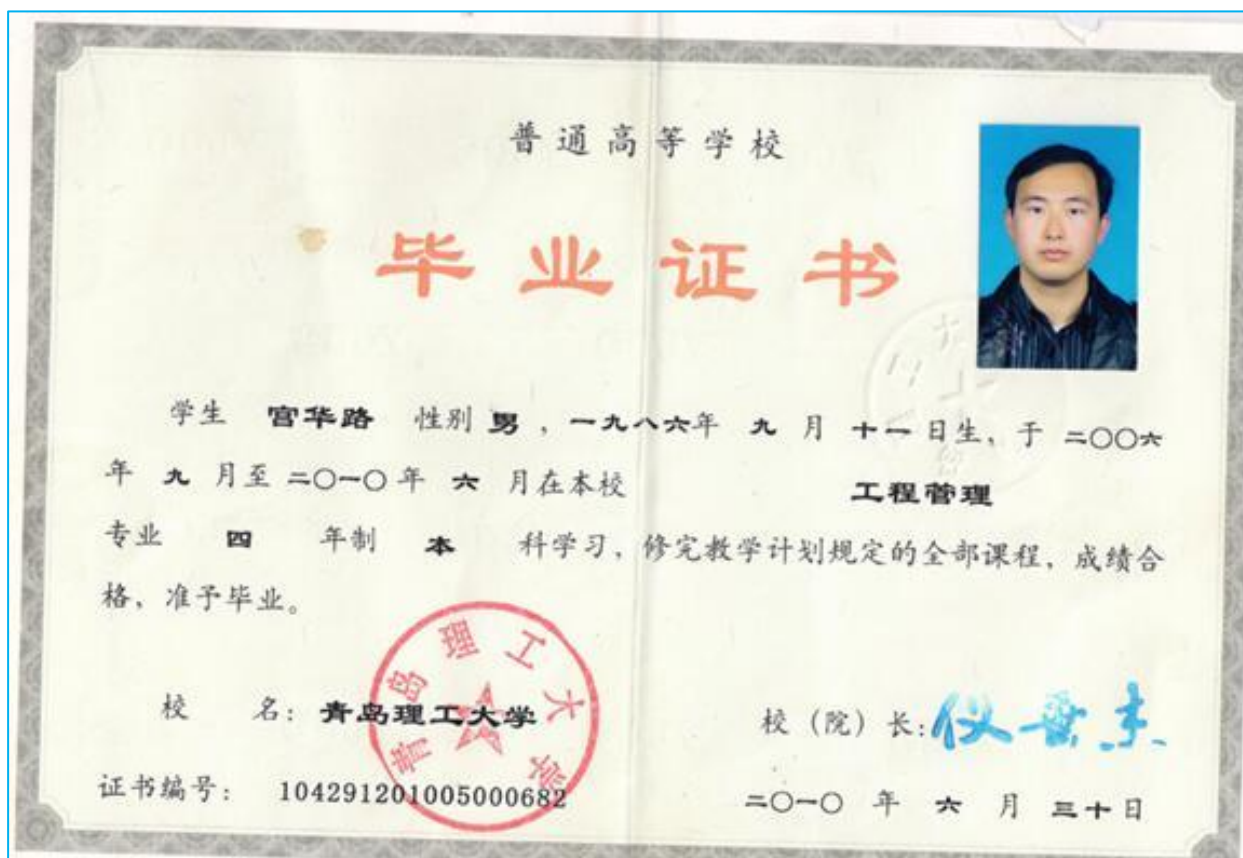 普通高等学校
毕业证书
学生 宫华路 性别 男，一九八六年 九 月 十一 日生，于 二〇〇六
年 九 月至 二〇一〇 年 六 月在本校 工程管理
专业 四 年制 本 科学习，修完教学计划规定的全部课程，成绩合
格，准予毕业。
青岛理工大学
校 名：青岛理工大学 校（院）长：仪垂杰
证书编号： 104291201005000682 二〇一〇 年 六 月 三十日